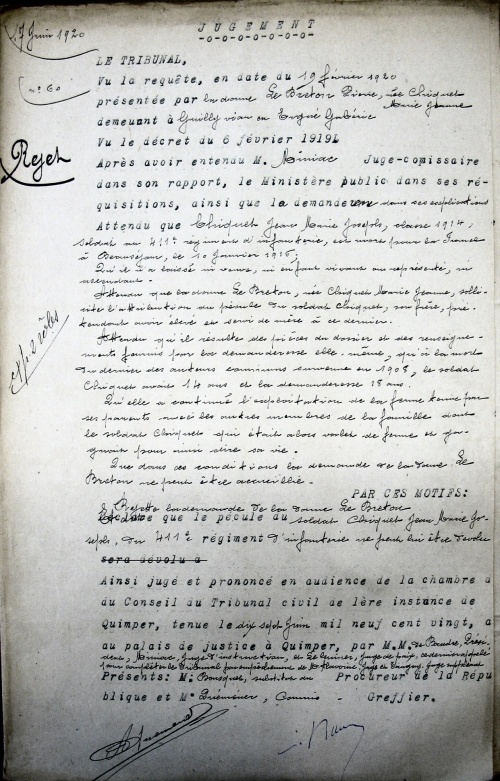 17 Juin 1920
JUGEMENT
-o-o-o-o-o-o-o-
LE TRIBUNAL,
n° 60
Vu la requête, en date du 19 février 1920
présentée par la dame Le Breton Pierre, née Chiquet
Marie Jeanne
demeurant à Guilly vian en Ergué Gabéric
Vu le décret du 6 février 1919L
Rejet
Après avoir entendu M. Miniac Juge-comissaire
dans son rapport, le Ministère public dans ses ré-
quisitions, ainsi que la demanderesse dans ses explications
Attendu que Chiquet Jean Marie Joseph, classe 1914,
soldat au 411e régiment d'infanterie, est mort pour la France
à Beauséjour, le 10 janvier 1916;
Qu'il n'a laissé ni veuve, ni enfant vivant ou représenté, ni
ascendant.
Attendu que la dame Le Breton, née Chiquet Marie Jeanne, solli-
cite l'attribution du pécule du soldat Chiquet, son frère, pré-
tendant avoir élevé et servi de mère à ce dernier.
Exp. 2 rôles
Attendu qu'il résulte des pièces du dossier et des renseigne-
ments fournis par la demanderesse elle-même, qu'à la mort
du dernier des auteurs communs survenue en 1908, le soldat
Chiquet avait 14 ans et la demanderesse 18 ans.
Qu'elle a continué l'exploitation de la ferme tenue par
ses parents avec les autres membres de la famille dont
le soldat Chiquet qui était alors valet de ferme et ga-
gnait pour ainsi dire sa vie.
Que dans ces conditions la demande de la dame Le
Breton ne peut être accueillie.
PAR CES MOTIFS:
Rejette la demande de la dame Le Breton
que le pécule du soldat Chiquet Jean Marie Jo-
seph, du 411e régiment d'infanterie ne peut lui être dévolu
sera dévolu à
Ainsi jugé et prononcé en audience de la chambre d
du Conseil du Tribunal civil de 1ère instance de
Quimper, tenue le dix sept Juin mil neuf cent vingt, a
au palais de justice à Quimper, par M.M. de Prési-
dent, Miniac, Juge d'instruction, et Juge de paix, ce dernier appelé
pour compléter le Tribunal par empêchement de Juge suppléant
Présents: M. Bousquet, substitut du Procureur de la Répu
blique et Me Commis - Greffier.